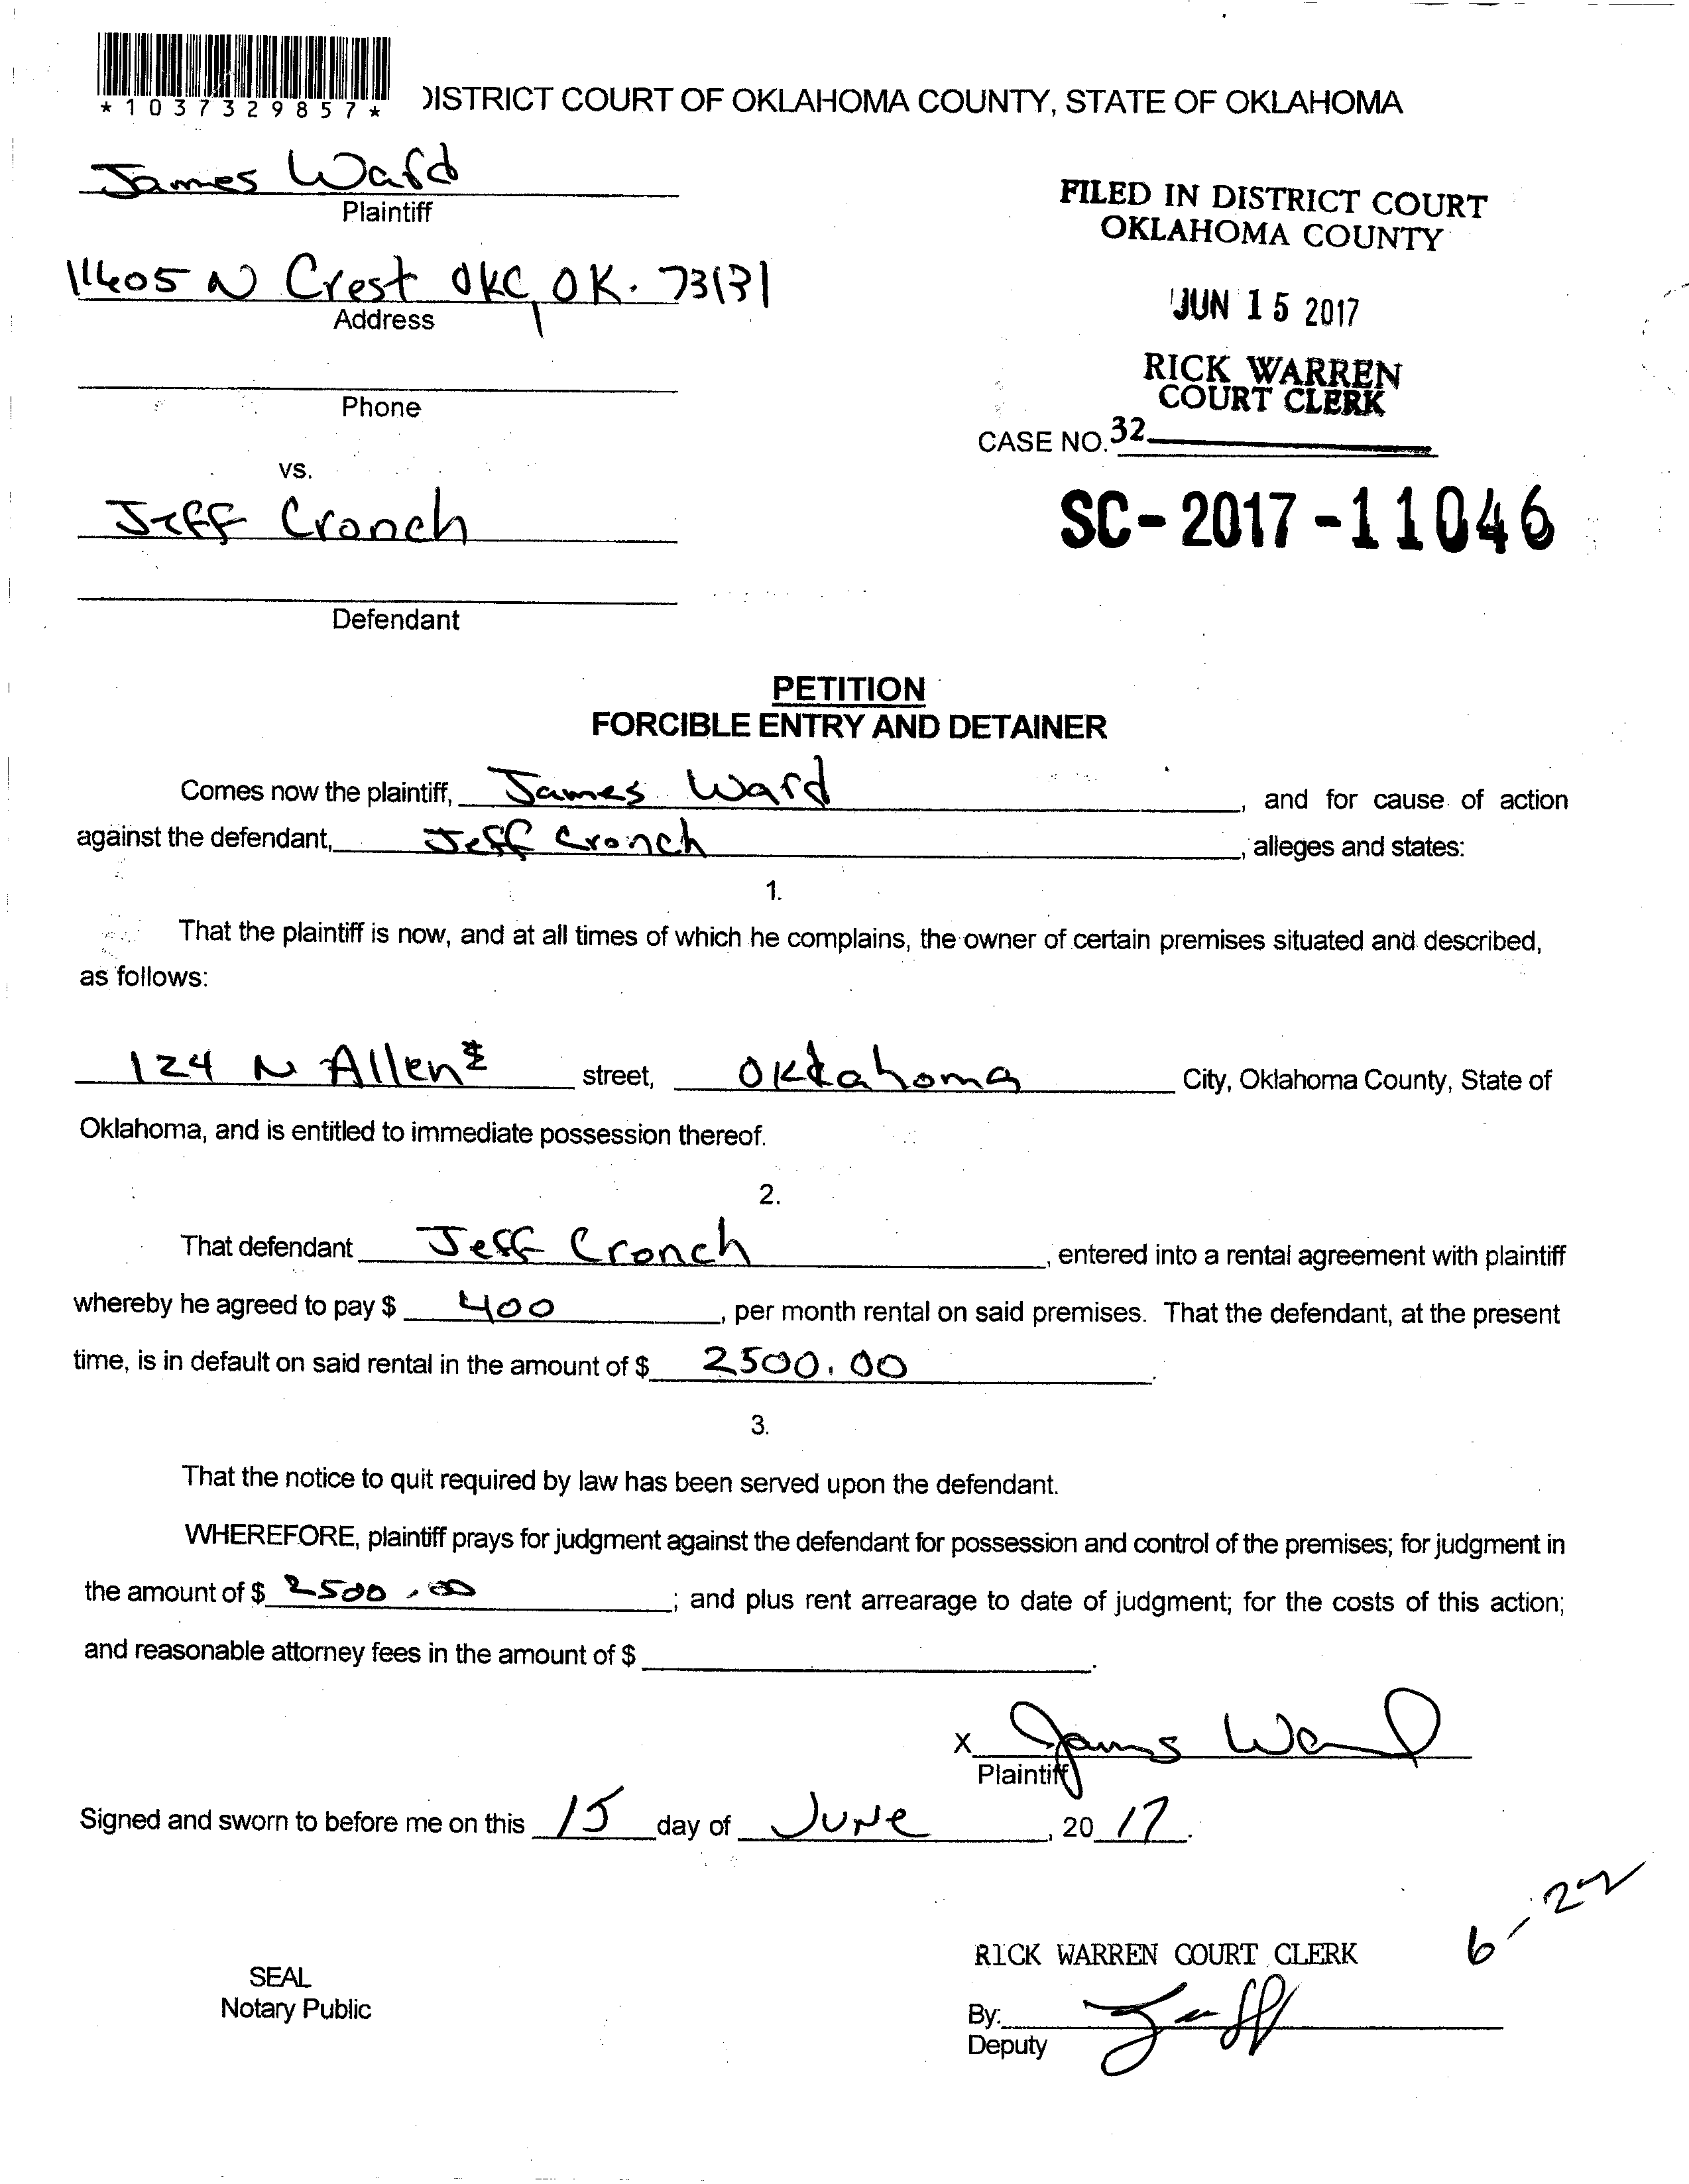 *1037329857*
DISTRICT COURT OF OKLAHOMA COUNTY, STATE OF OKLAHOMA
James Ward
Plaintiff
FILED IN DISTRICT COURT
OKLAHOMA COUNTY
11605 N Crest OKC, OK. 73131
Address
JUN 15 2017
RICK WARREN
COURT CLERK
Phone
CASE NO. 32
vs.
Jeff Cronch
SC-2017-11046
Defendant
PETITION
FORCIBLE ENTRY AND DETAINER
Comes now the plaintiff, James Ward, and for cause of action
against the defendant, Jeff Cronch, alleges and states:
1.
That the plaintiff is now, and at all times of which he complains, the owner of certain premises situated and described,
as follows:
124 N Allen street, Oklahoma City, Oklahoma County, State of
Oklahoma, and is entitled to immediate possession thereof.
2.
That defendant Jeff Cronch, entered into a rental agreement with plaintiff
whereby he agreed to pay $ 400, per month rental on said premises. That the defendant, at the present
time, is in default on said rental in the amount of $ 2500.00.
3.
That the notice to quit required by law has been served upon the defendant.
WHEREFORE, plaintiff prays for judgment against the defendant for possession and control of the premises; for judgment in
the amount of $ 2500.00; and plus rent arrearage to date of judgment; for the costs of this action;
and reasonable attorney fees in the amount of $ .
X James Ward
Plaintiff
Signed and sworn to before me on this 15 day of June, 2017.
6-22
RICK WARREN COURT CLERK
SEAL
Notary Public
By:
Deputy